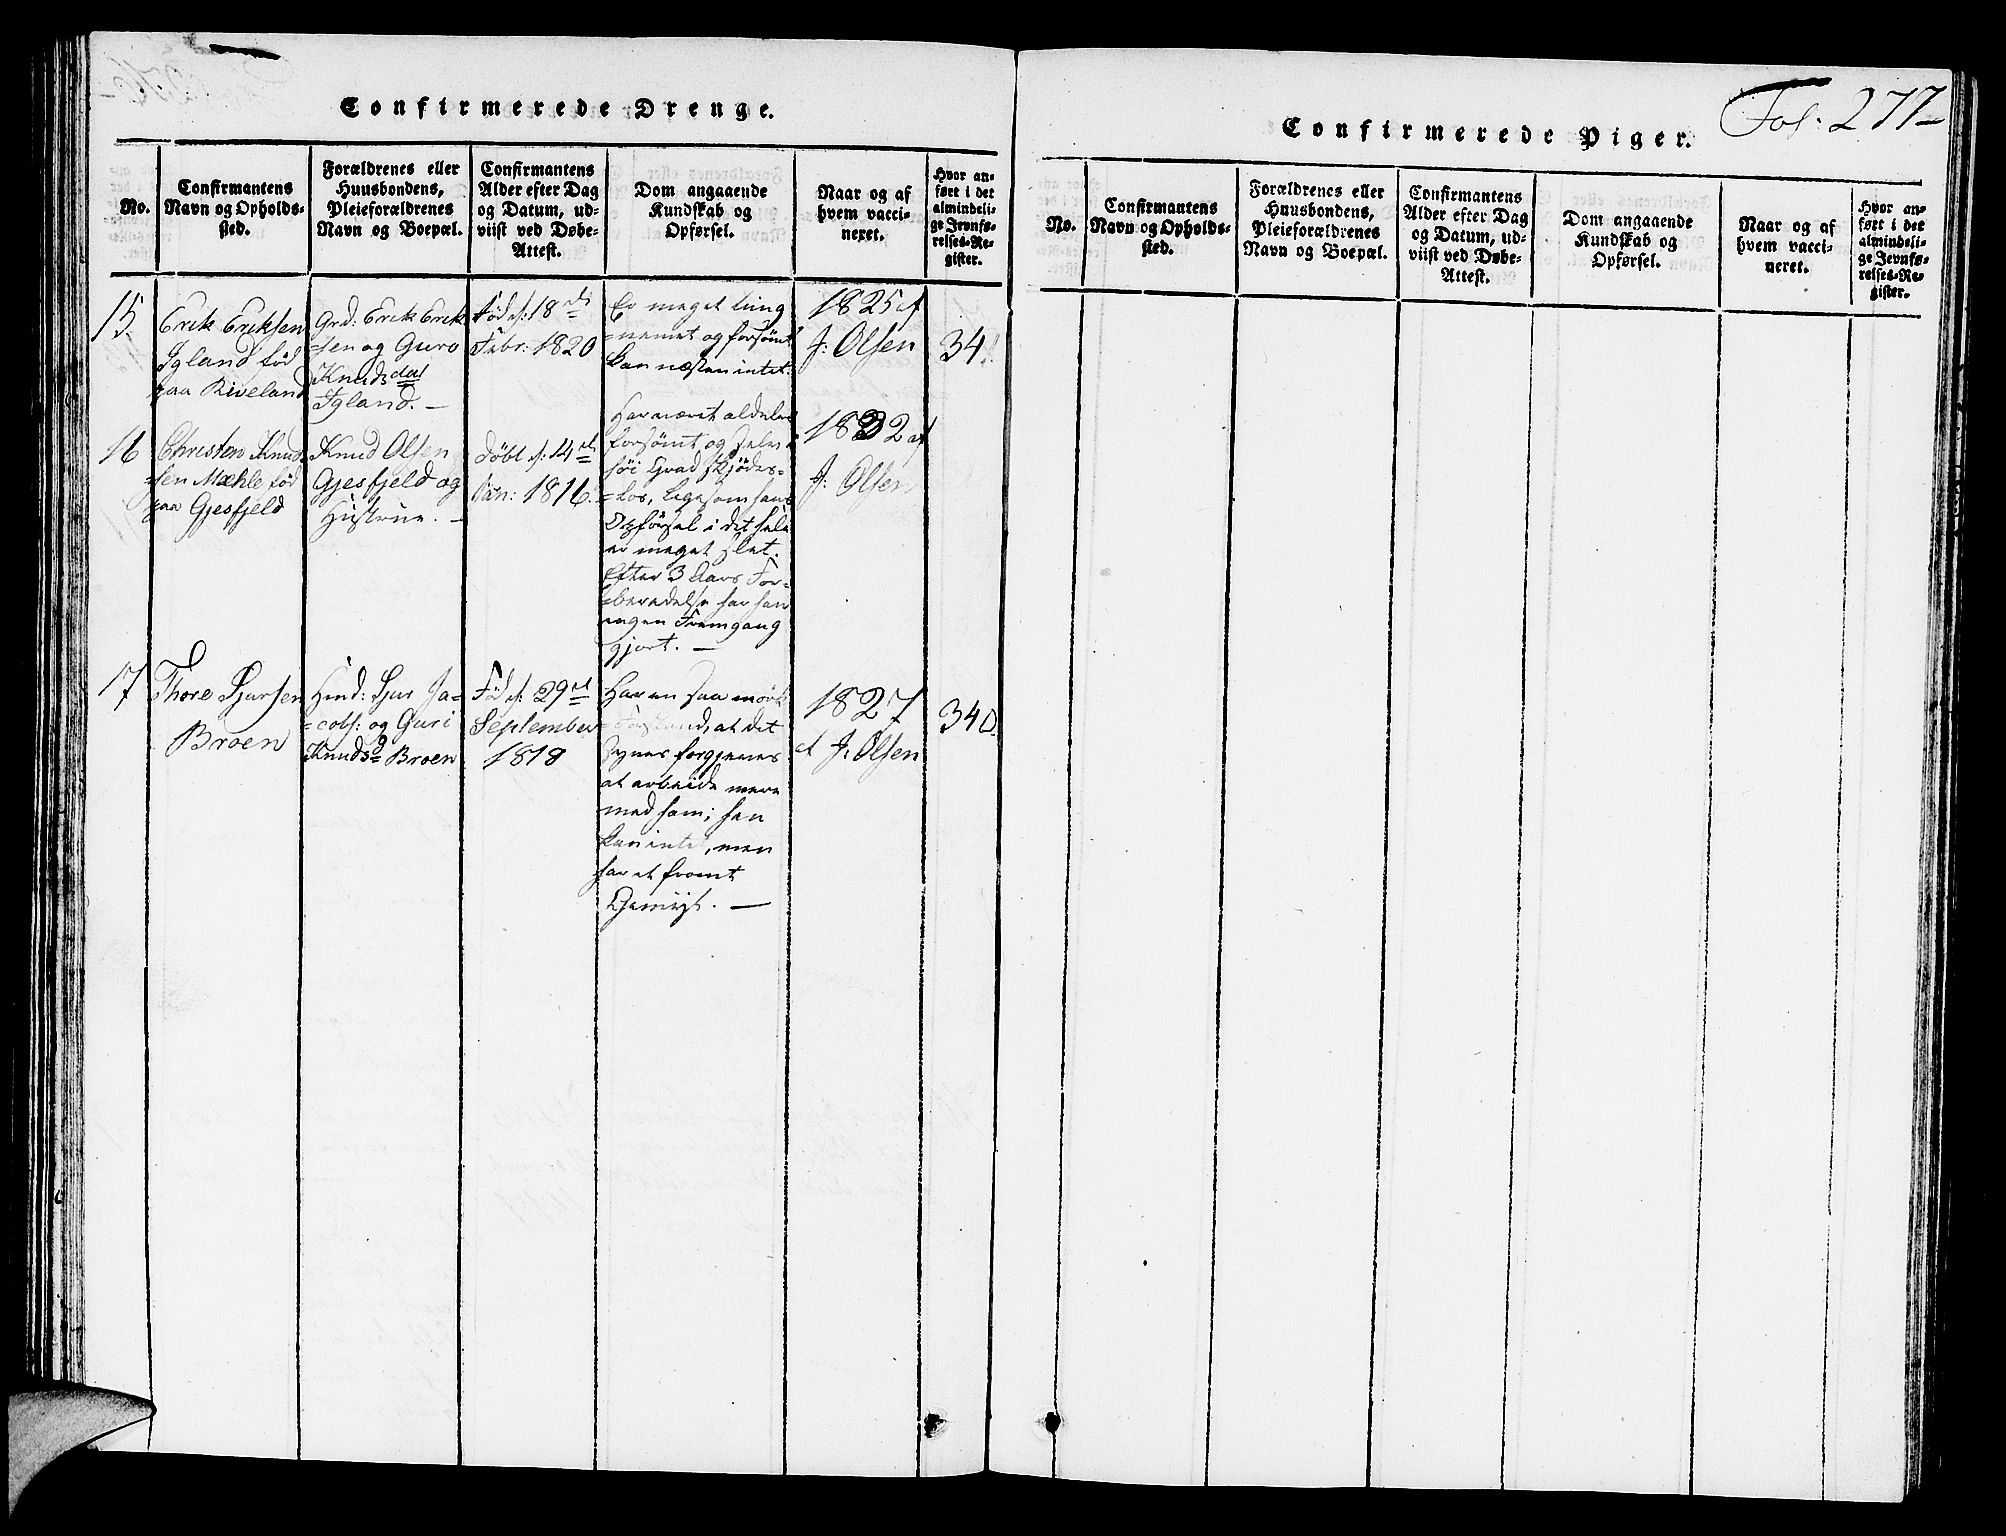 Confirmerede Drenge.
No.
Confirmantens
Navn og Opholds-
sted.
Forældrenes eller
Huusbondens,
Pleieforældrenes
Navn og Boepæl.
Confirmantens
Alder efter Dag
og Datum, ud-
viist ved Døbe-
Attest.
Dom angaaende
Kundskab og
Opførsel.
Naar og af
hvem vacci-
neret.
Hvor an-
ført i det
almindeli-
ge Jevnfø-
relses-Re-
gister.
15.
Erik Eriksen
Igland fød
paa Riveland
Grd: Erik Erik
=sen og Guro
Knudsdat
Igland. —
Fød d: 18de
Febr: 1820
Er meget tung
=nemet og forsømt
kan næsten intet.
1825 af
J: Olsen
34.
16
Christen Knud
=sen Mæhle fød
paa Gjesfjeld
Knud Olsen
Gjesfjeld og
Hustrue. —
Døbt d: 14de
Jan: 1816.
Har været aldeles
forsømt og
høi Grad skjødes=
=løs, ligesom hans
Opførsel i det hele
er meget slet.
Efter 3 Aars For=
=beredelse har han
ingen Fremgang
gjort. —
1832 af
J: Olsen
17
Thore Sjursen
Broen
Huusd: Sjur Ja=
=cobs: og Guri
Knudsd Broen
Fød d: 29de
September
1818
Har en saa mørk
=Forstand, at det
synes forgjeves
at arbeide mere
med ham; han
kan intet, men
har et fromt
Gemyt. —
1827
af J: Olsen
340.
Fol: 277—
Confirmerede Piger.
No.
Confirmantens
Navn og Opholds-
sted.
Forældrenes eller
Huusbondens,
Pleieforældrenes
Navn og Boepæl.
Confirmantens
Alder efter Dag
og Datum, ud-
viist ved Døbe-
Attest.
Dom angaaende
Kundskab og
Opførsel.
Naar og af
hvem vacci-
neret.
Hvor an-
ført i det
almindeli-
ge Jevnfø-
relses-Re-
gister.